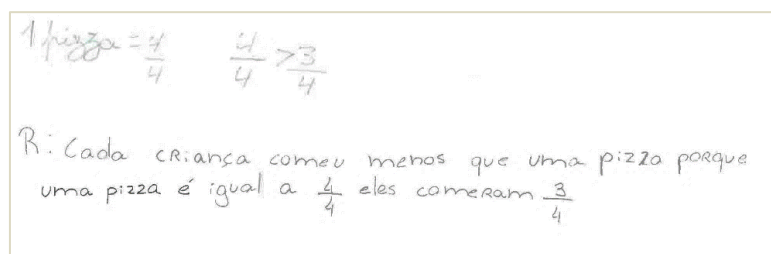 1 pizza = 4/4 4/4 > 3/4
R: Cada criança comeu menos que uma pizza porque
uma pizza é igual a 4/4 eles comeram 3/4